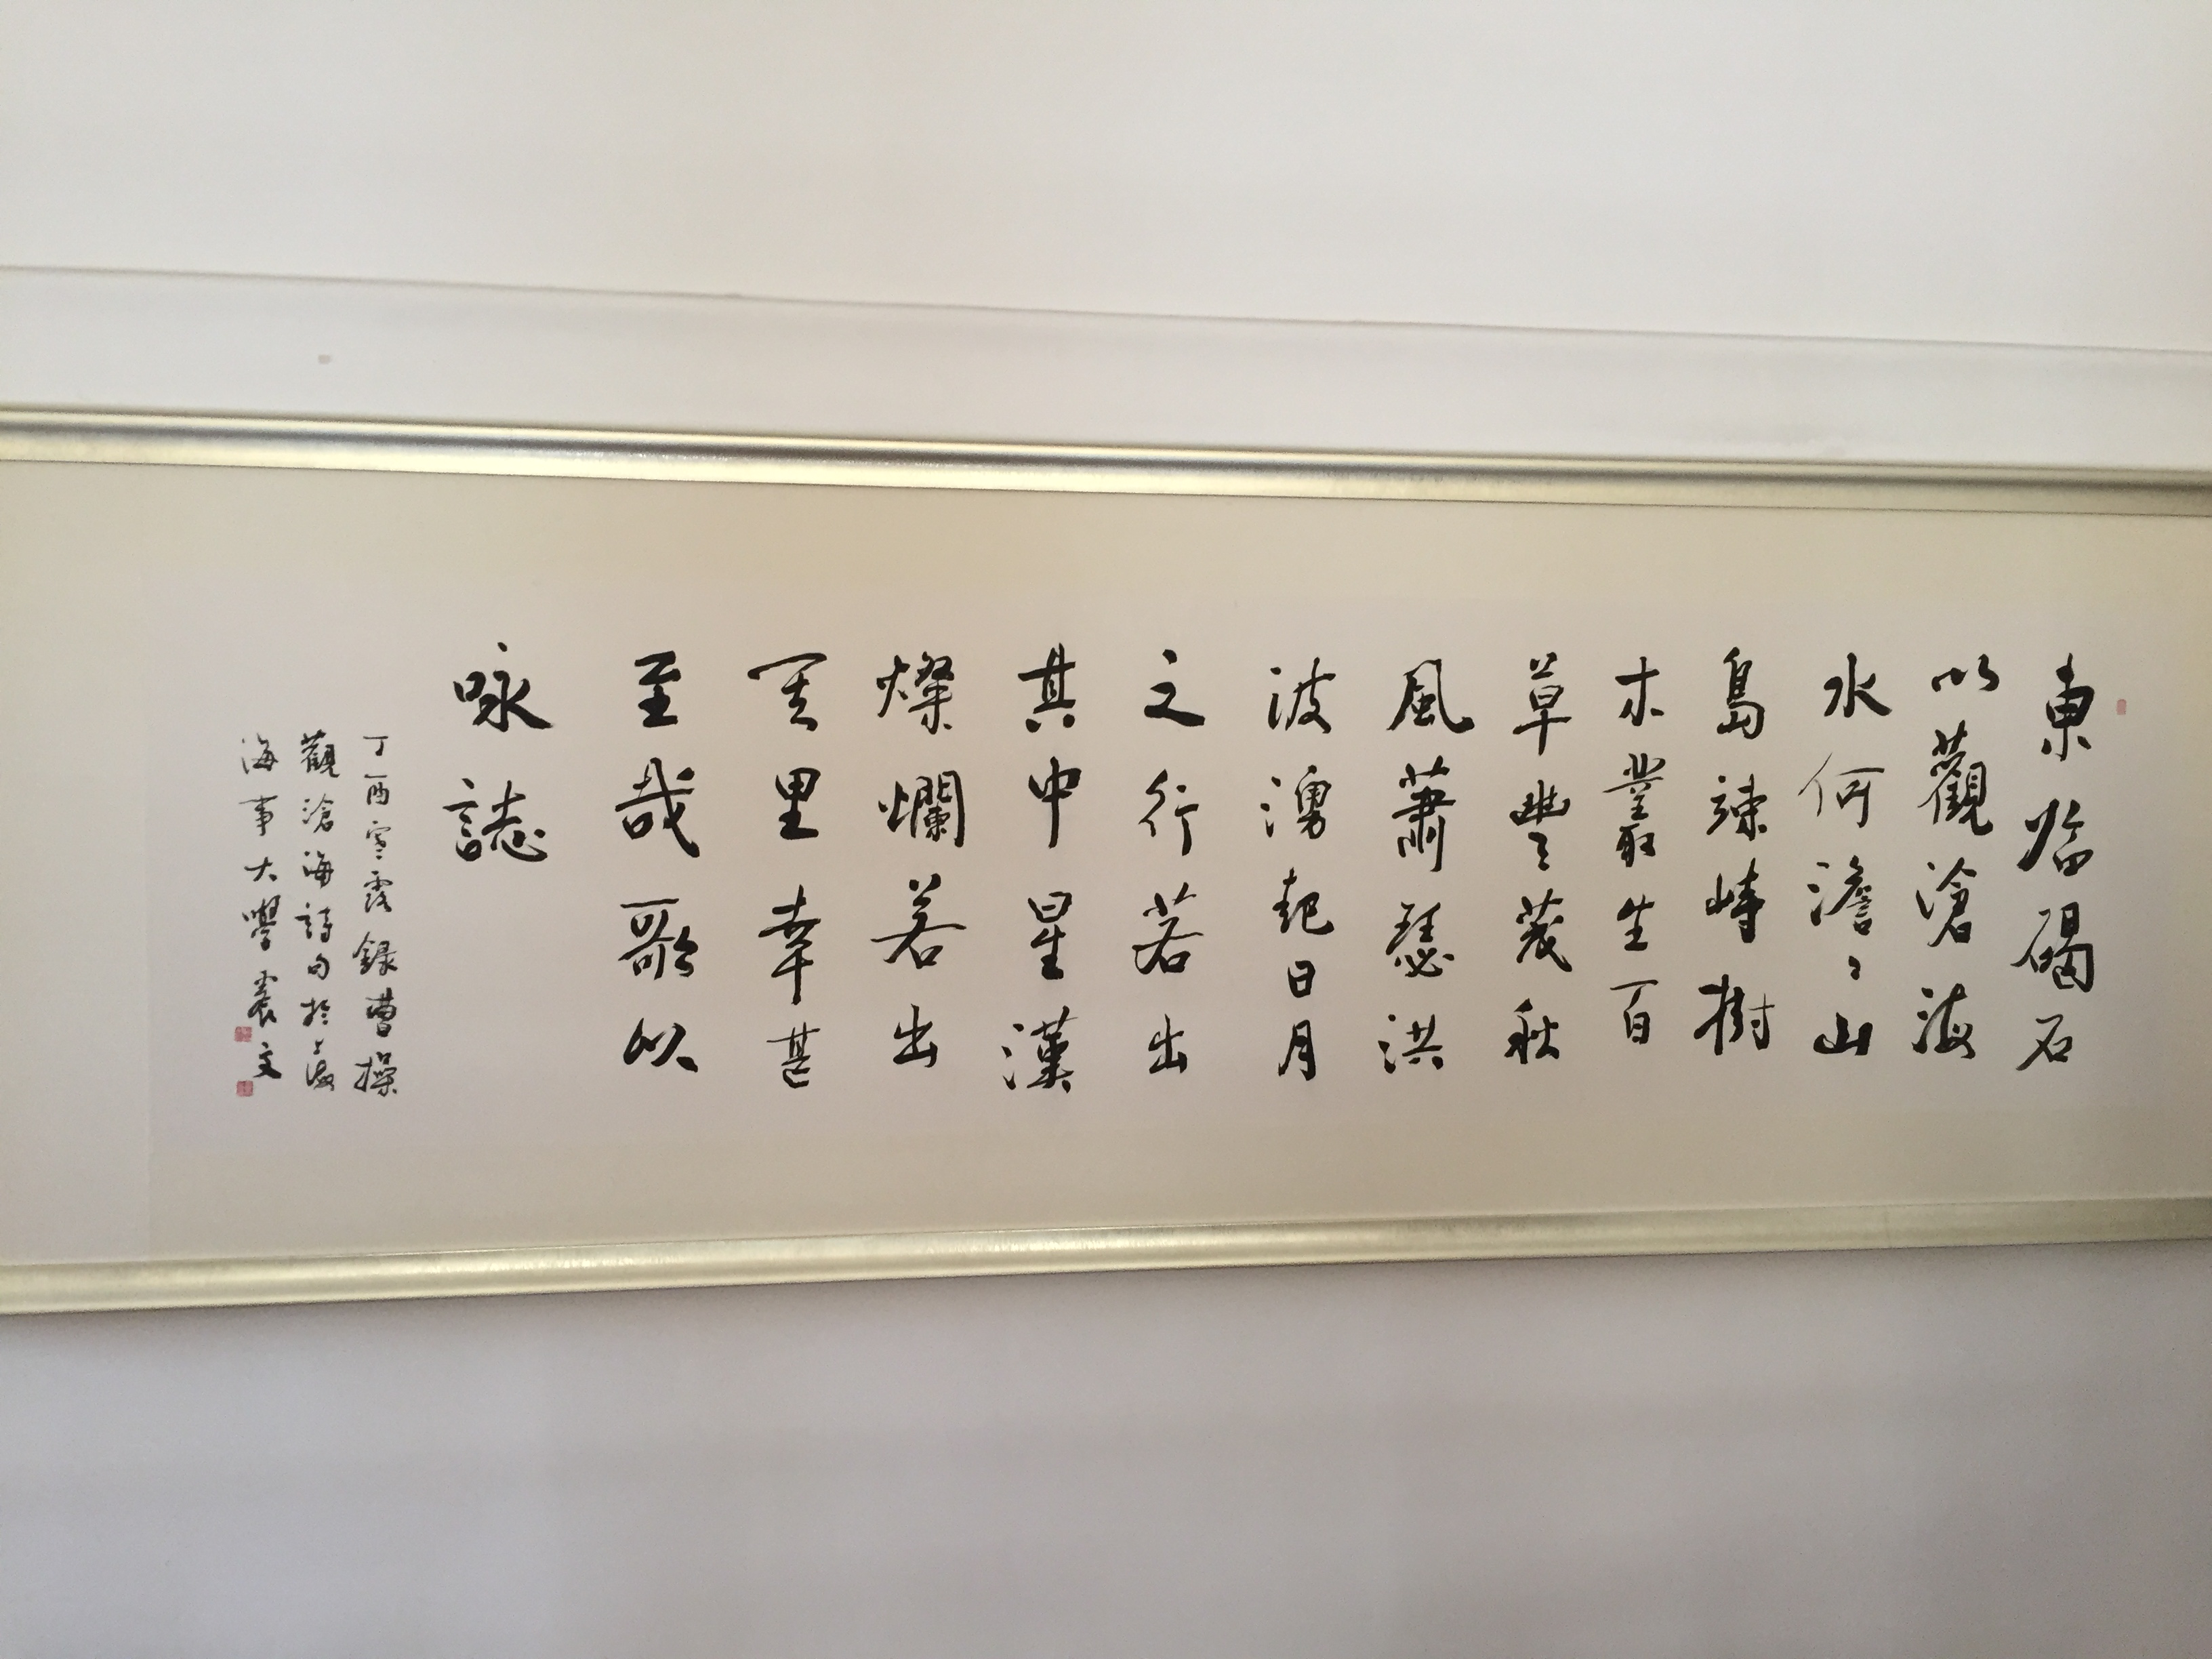 東臨碣石
以觀滄海
水何澹〻山
島竦峙樹
木叢生百
草豐茂秋
風蕭瑟洪
波湧起日月
之行若出
其中星漢
燦爛若出
其里幸甚
至哉歌以
咏誌
丁酉寒露錄曹操
觀滄海詩句於上海
海事大學震文